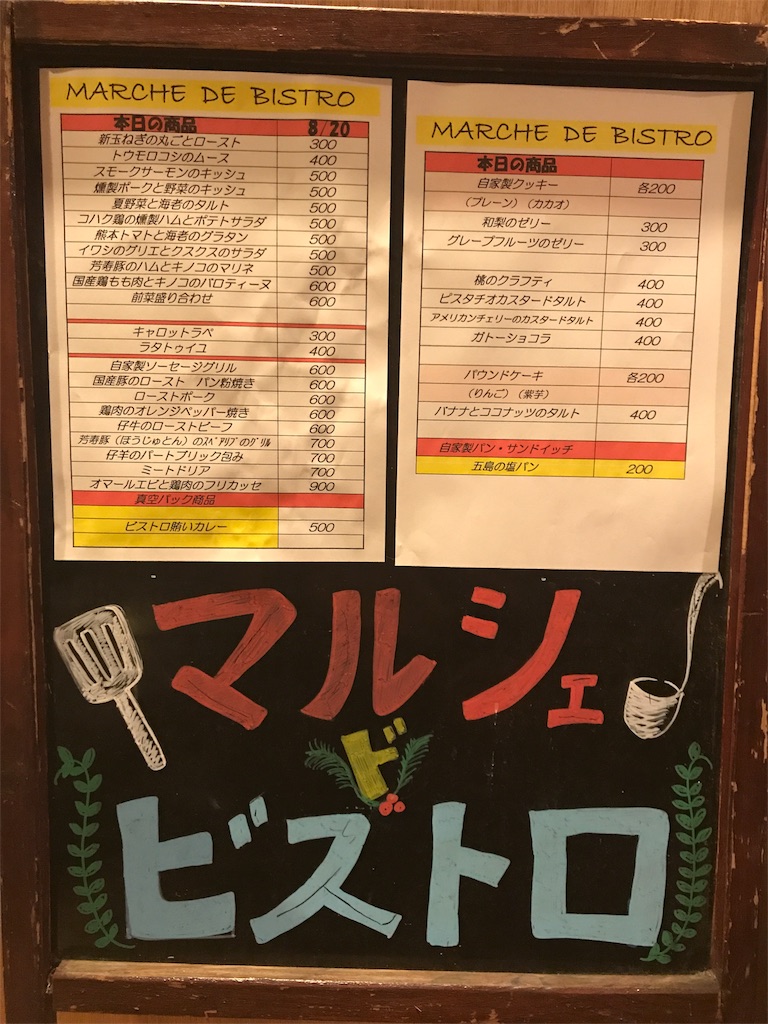 MARCHE DE BISTRO
本日の商品 8/20
新玉ねぎの丸ごとロースト 300
トウモロコシのムース 400
スモークサーモンのキッシュ 500
燻製ポークと野菜のキッシュ 500
夏野菜と海老のタルト 500
コハク鶏の燻製ハムとポテトサラダ 500
熊本トマトと海老のグラタン 500
イワシのグリエとクスクスのサラダ 500
芳寿豚のハムとキノコのマリネ 500
国産鶏もも肉とキノコのバロティーヌ 600
前菜盛り合わせ 600
キャロットラペ 300
ラタトゥイユ 400
自家製ソーセージグリル 600
国産豚のロースト パン粉焼き 600
ローストポーク 600
鶏肉のオレンジペッパー焼き 600
仔牛のローストビーフ 600
芳寿豚（ほうじゅとん）のスペアリブのグリル 700
仔羊のパートブリック包み 700
ミートドリア 700
オマールエビと鶏肉のフリカッセ 900
真空パック商品
ビストロ賄いカレー 500
MARCHE DE BISTRO
本日の商品
自家製クッキー 各200
（プレーン）（カカオ）
和梨のゼリー 300
グレープフルーツのゼリー 300
桃のクラフティ 400
ピスタチオカスタードタルト 400
アメリカンチェリーのカスタードタルト 400
ガトーショコラ 400
パウンドケーキ 各200
（りんご）（紫芋）
バナナとココナッツのタルト 400
自家製パン・サンドイッチ
五島の塩パン 200
マルシェ
ド
ビストロ